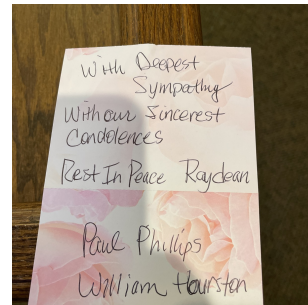 With Deepest
Sympathy
With our Sincerest
Condolences
Rest In Peace Raydean
Paul Phillips
William Hourston